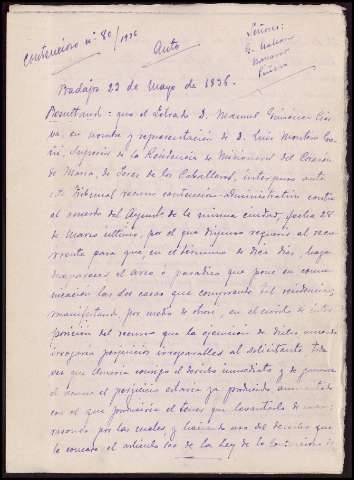 Contencioso nº 80/1936
Señores:
G.
Navarro
Auto
Badajoz 23 de Mayo de 1936.
Resultando = que el Letrado D. Manuel Giménez Cier-
va, en nombre y representación de D. Luis Montero
Superior de la Residencia de Misioneros del Corazón
de María, de Jerez de los Caballeros, interpuso ante
este Tribunal recurso contencioso-administrativo contra
el acuerdo del Ayunto de la misma ciudad, fecha 28
de Marzo último, por el que dispuso requerir al recu-
rrente para que, en el término de diez dias, haga
desaparecer el arco o paradizo que pone en comu-
nicación las dos casas que comprende la residencia;
manifestando, por medio de otrosi, en el escrito de inter-
posición del recurso que la ejecución de dicho acuerdo
irrogaria perjuicios irreparables al solicitante toda
vez que llevaria consigo el derribo inmediato y de ganarse
el recurso el perjuicio estaria ya producido, aumentado
con el que produciria el tener que levantarlo de nuevo,
razones por las cuales y haciendo uso del derecho que
le concede el artículo 100 de la Ley de lo Contencioso